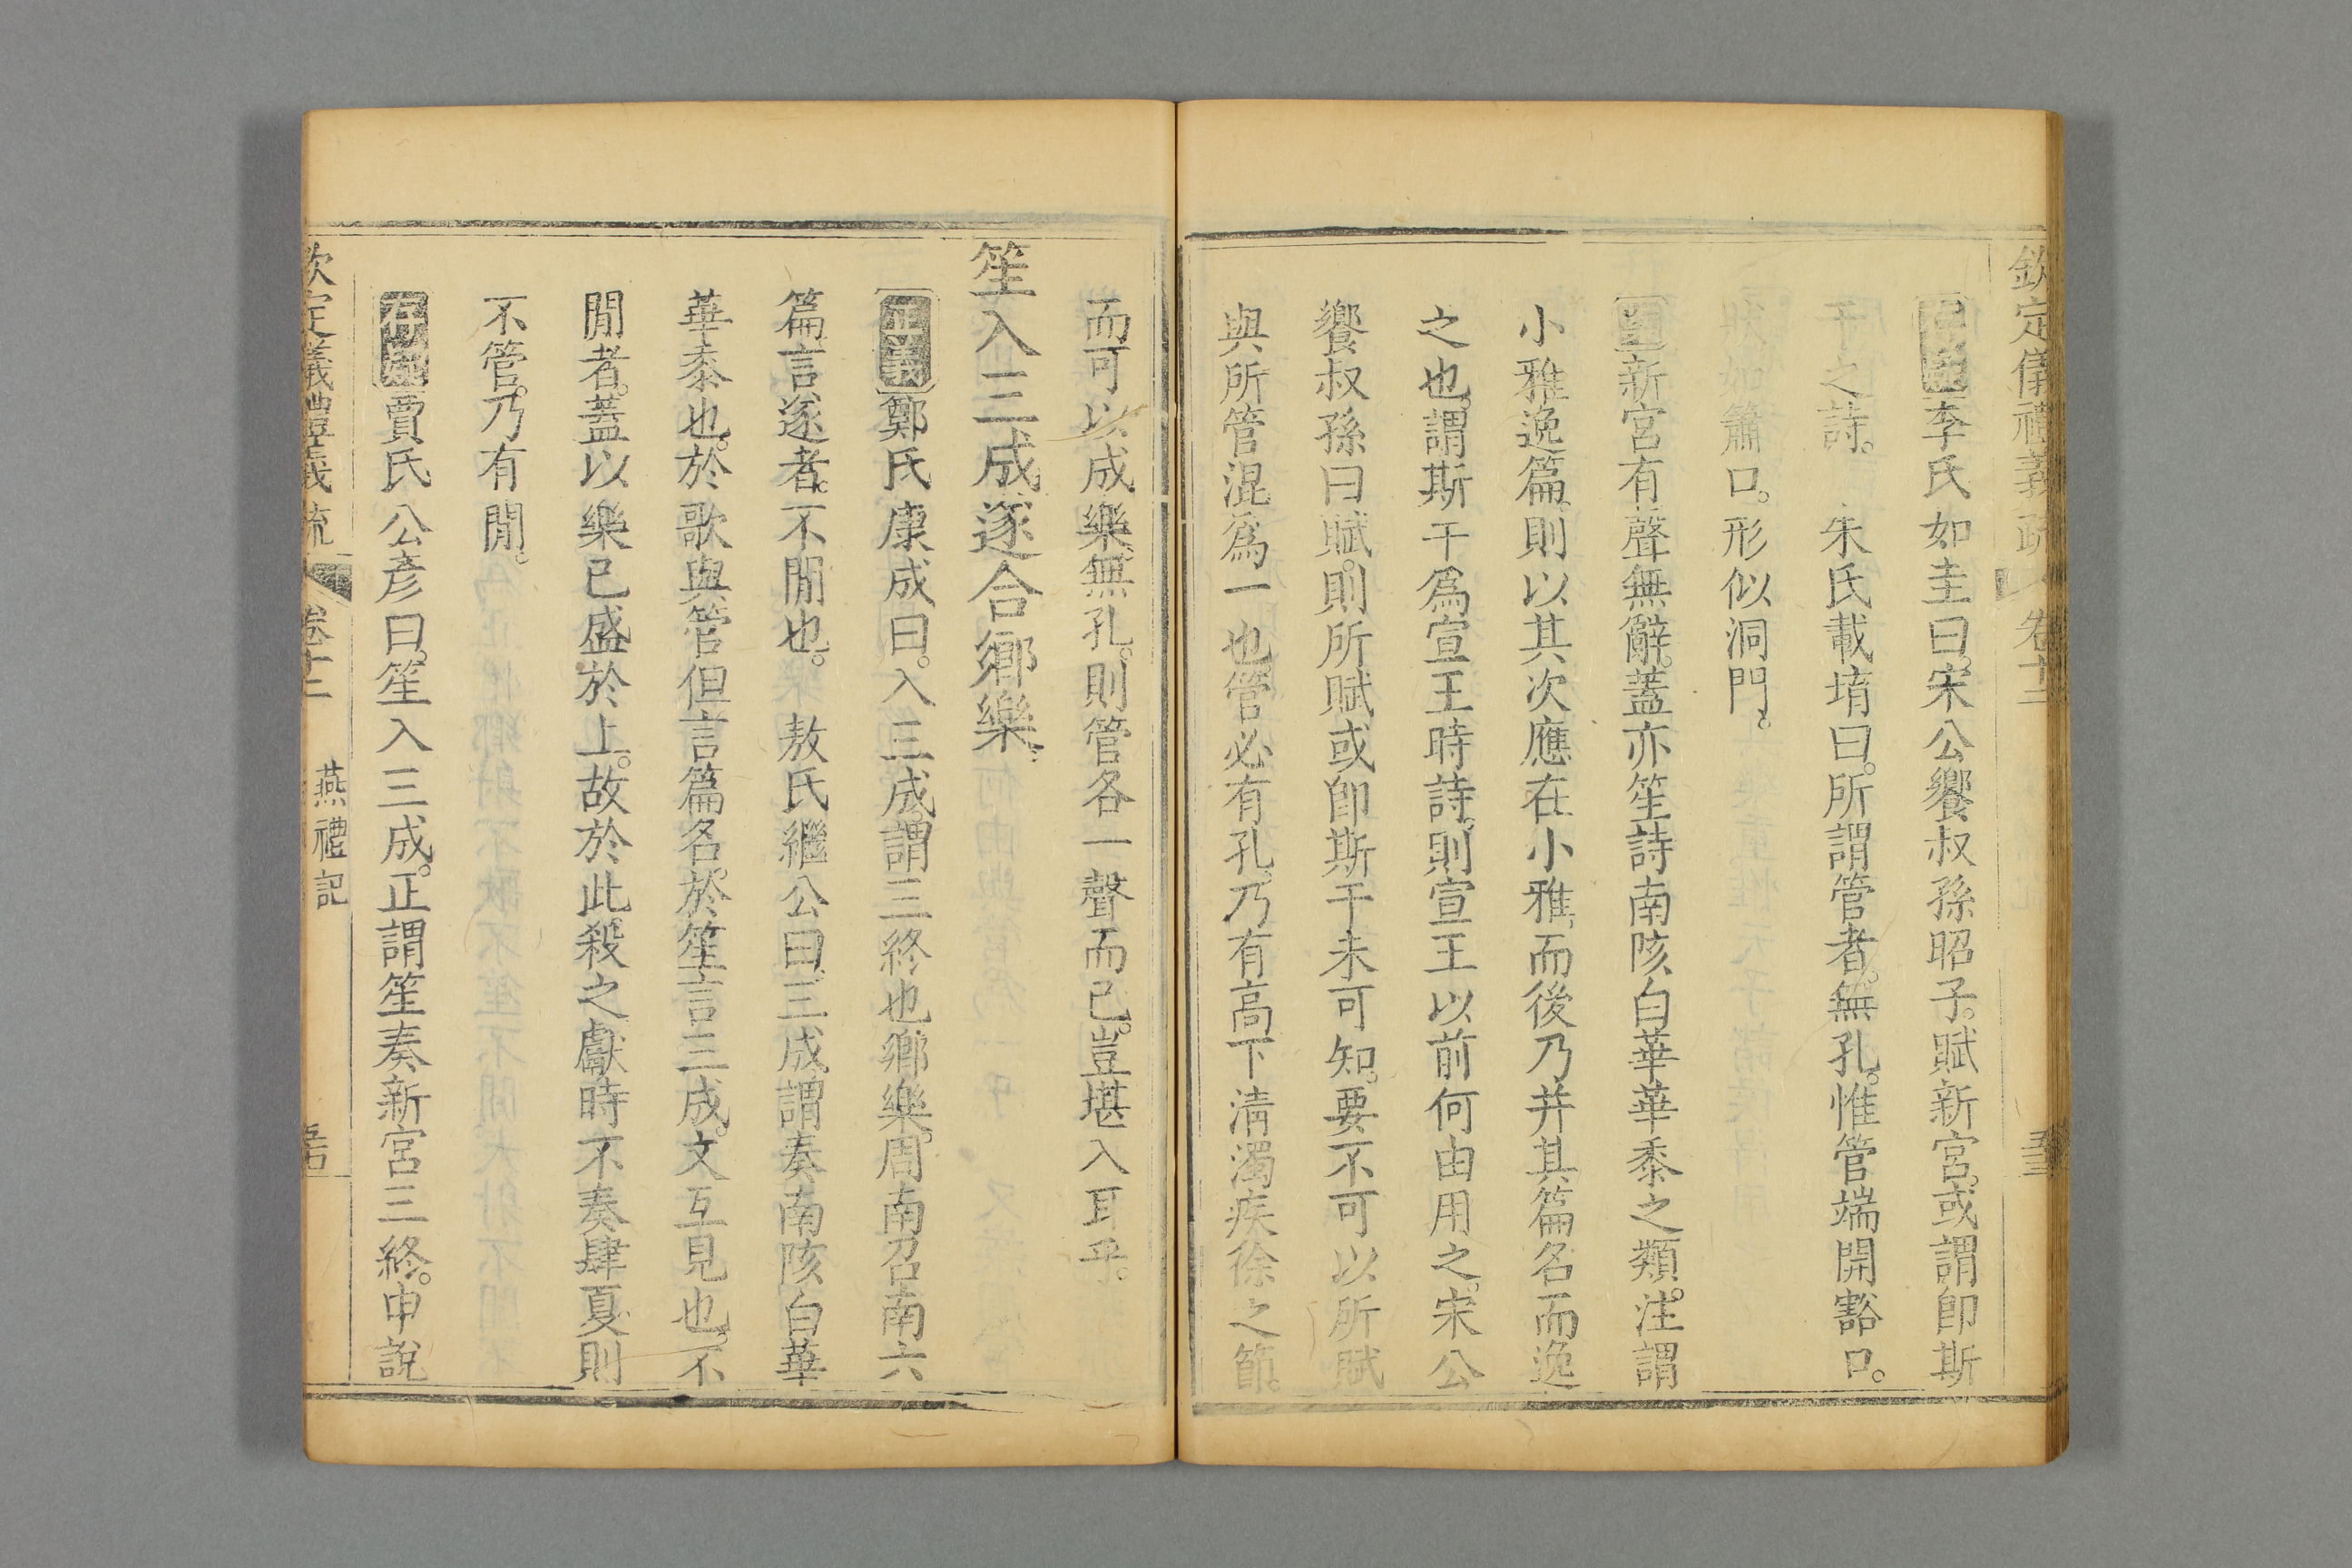 欽定儀禮義疏 卷十二
李氏如圭曰宋公饗叔孫昭子賦新宮或謂即斯
干之詩。 朱氏載堉曰所謂管者無孔惟管端開豁口。
簫口。形似洞門。
案新宮有聲無辭。蓋亦笙詩南陔白華華黍之類。注謂
小雅逸篇則以其次應在小雅而後乃并其篇名而逸
之也。謂斯干為宣王時詩則宣王以前何由用之宋公
饗叔孫曰賦。則所賦或即斯干未可知。要不可以所賦
與所管混為一也管必有孔乃有高下清濁疾徐之節。
而可以成樂無孔。則管各一聲而已。豈堪入耳乎。
笙入三成遂合鄉樂
正義鄭氏康成曰。入三成謂三終也鄉樂。周南召南六
篇言遂者。不閒也。 敖氏繼公曰三成謂奏南陔白華
華黍也。於歌與管但言篇名。於笙言三成。文互見也。不
閒者。蓋以樂已盛於上。故於此殺之獻時不奏肆夏則
不管。乃有閒。
存疑賈氏公彥曰。笙入三成。正謂笙奏新宮三終。申說
欽定儀禮義疏 卷十二 燕禮記